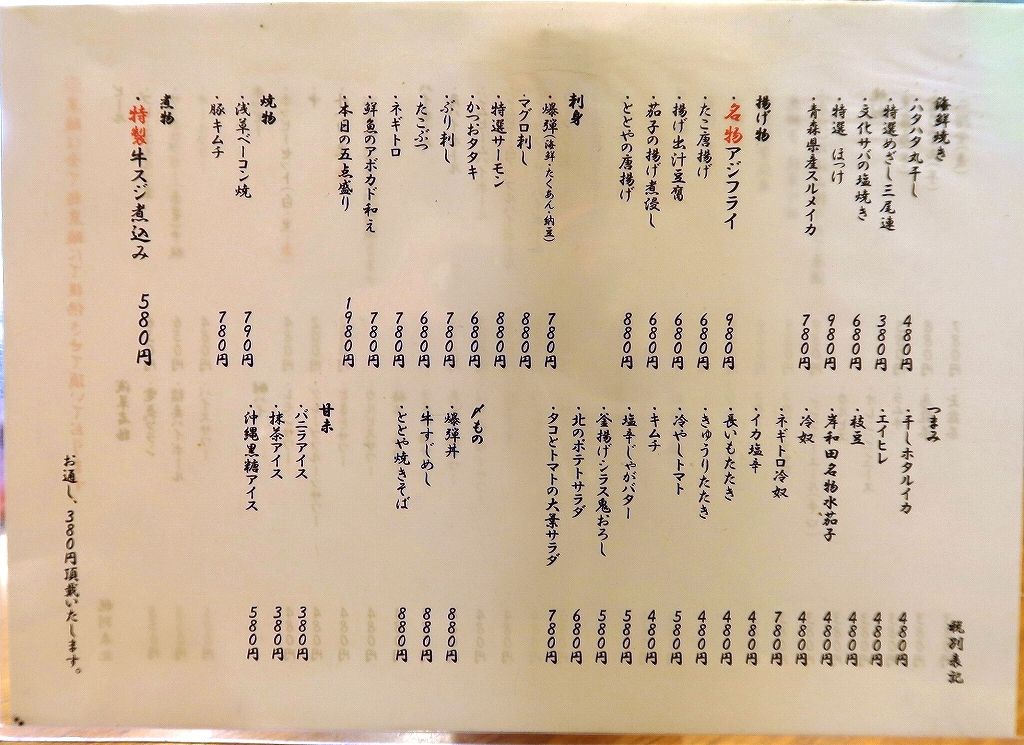 海鮮焼き
・ハタハタ丸干し 480円
・特選めざし三尾連 380円
・文化サバの塩焼き 680円
・特選 ほっけ 980円
・青森県産スルメイカ 780円
揚げ物
・名物アジフライ 980円
・たこ唐揚げ 680円
・揚げ出汁豆腐 680円
・茄子の揚げ煮浸し 680円
・ととやの唐揚げ 880円
刺身
・爆弾(海鮮・たくあん・納豆) 780円
・マグロ刺し 880円
・特選サーモン 880円
・かつおタタキ 680円
・ぶり刺し 780円
・たこぶつ 680円
・ネギトロ 780円
・鮮魚のアボカド和え 780円
・本日の五点盛り 1980円
焼物
・浅草ベーコン焼 790円
・豚キムチ 780円
煮物
・特製牛スジ煮込み 580円
税別表記
つまみ
・干しホタルイカ 480円
・エイヒレ 480円
・枝豆 480円
・岸和田名物水茄子 480円
・冷奴 480円
・ネギトロ冷奴 780円
・イカ塩辛 480円
・長いもたたき 480円
・きゅうりたたき 480円
・冷やしトマト 580円
・キムチ 480円
・塩辛じゃがバター 580円
・釜揚げシラス鬼おろし 580円
・北のポテトサラダ 680円
・タコとトマトの大葉サラダ 780円
〆もの
・爆弾丼 880円
・牛すじめし 880円
・ととや焼きそば 880円
甘味
・バニラアイス 380円
・抹茶アイス 380円
・沖縄黒糖アイス 580円
お通し、380円頂戴いたします。